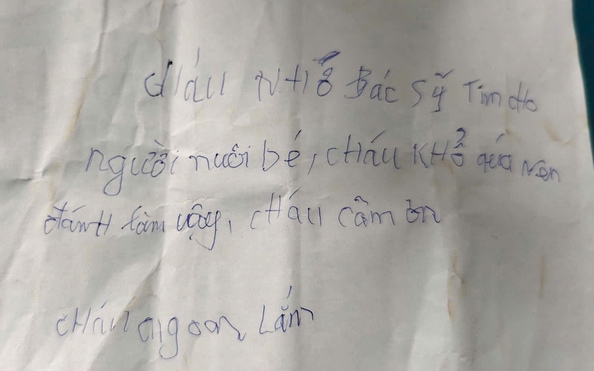 cháu NHỜ Bác Sỹ Tìm Ho
người nuôi bé, cHáu KHổ quá nên
đánH Làm vậy, cHáu cãm ơn
cHáu ngoan Lắm